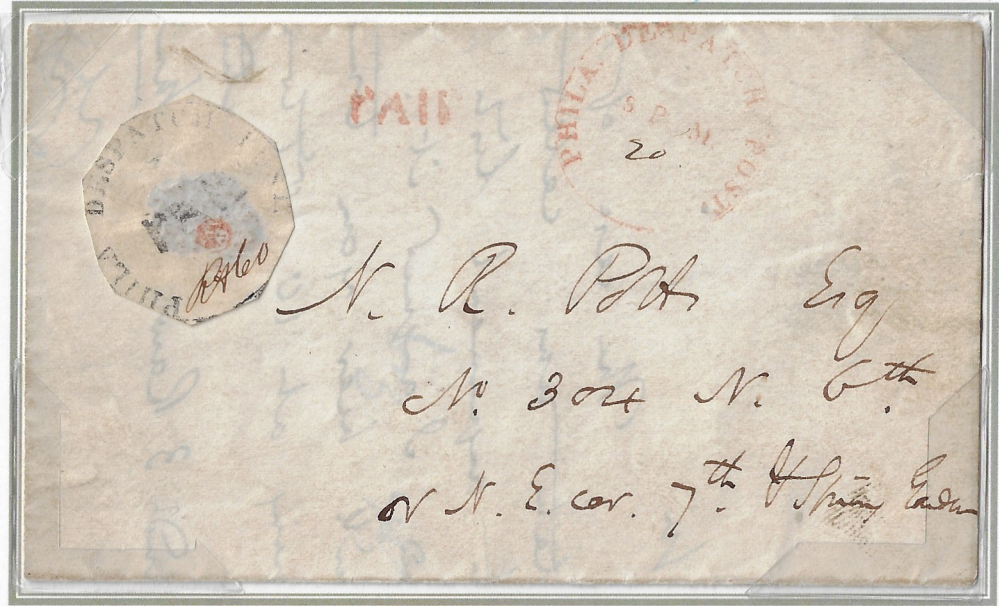 PHILA. DESPATCH POST
8 P. M
PAID
20
PHILA DESPATCH POST
N. R. Potts Esq
No. 304 N. 6th.
or N. E. cor. 7th & Spring Garden